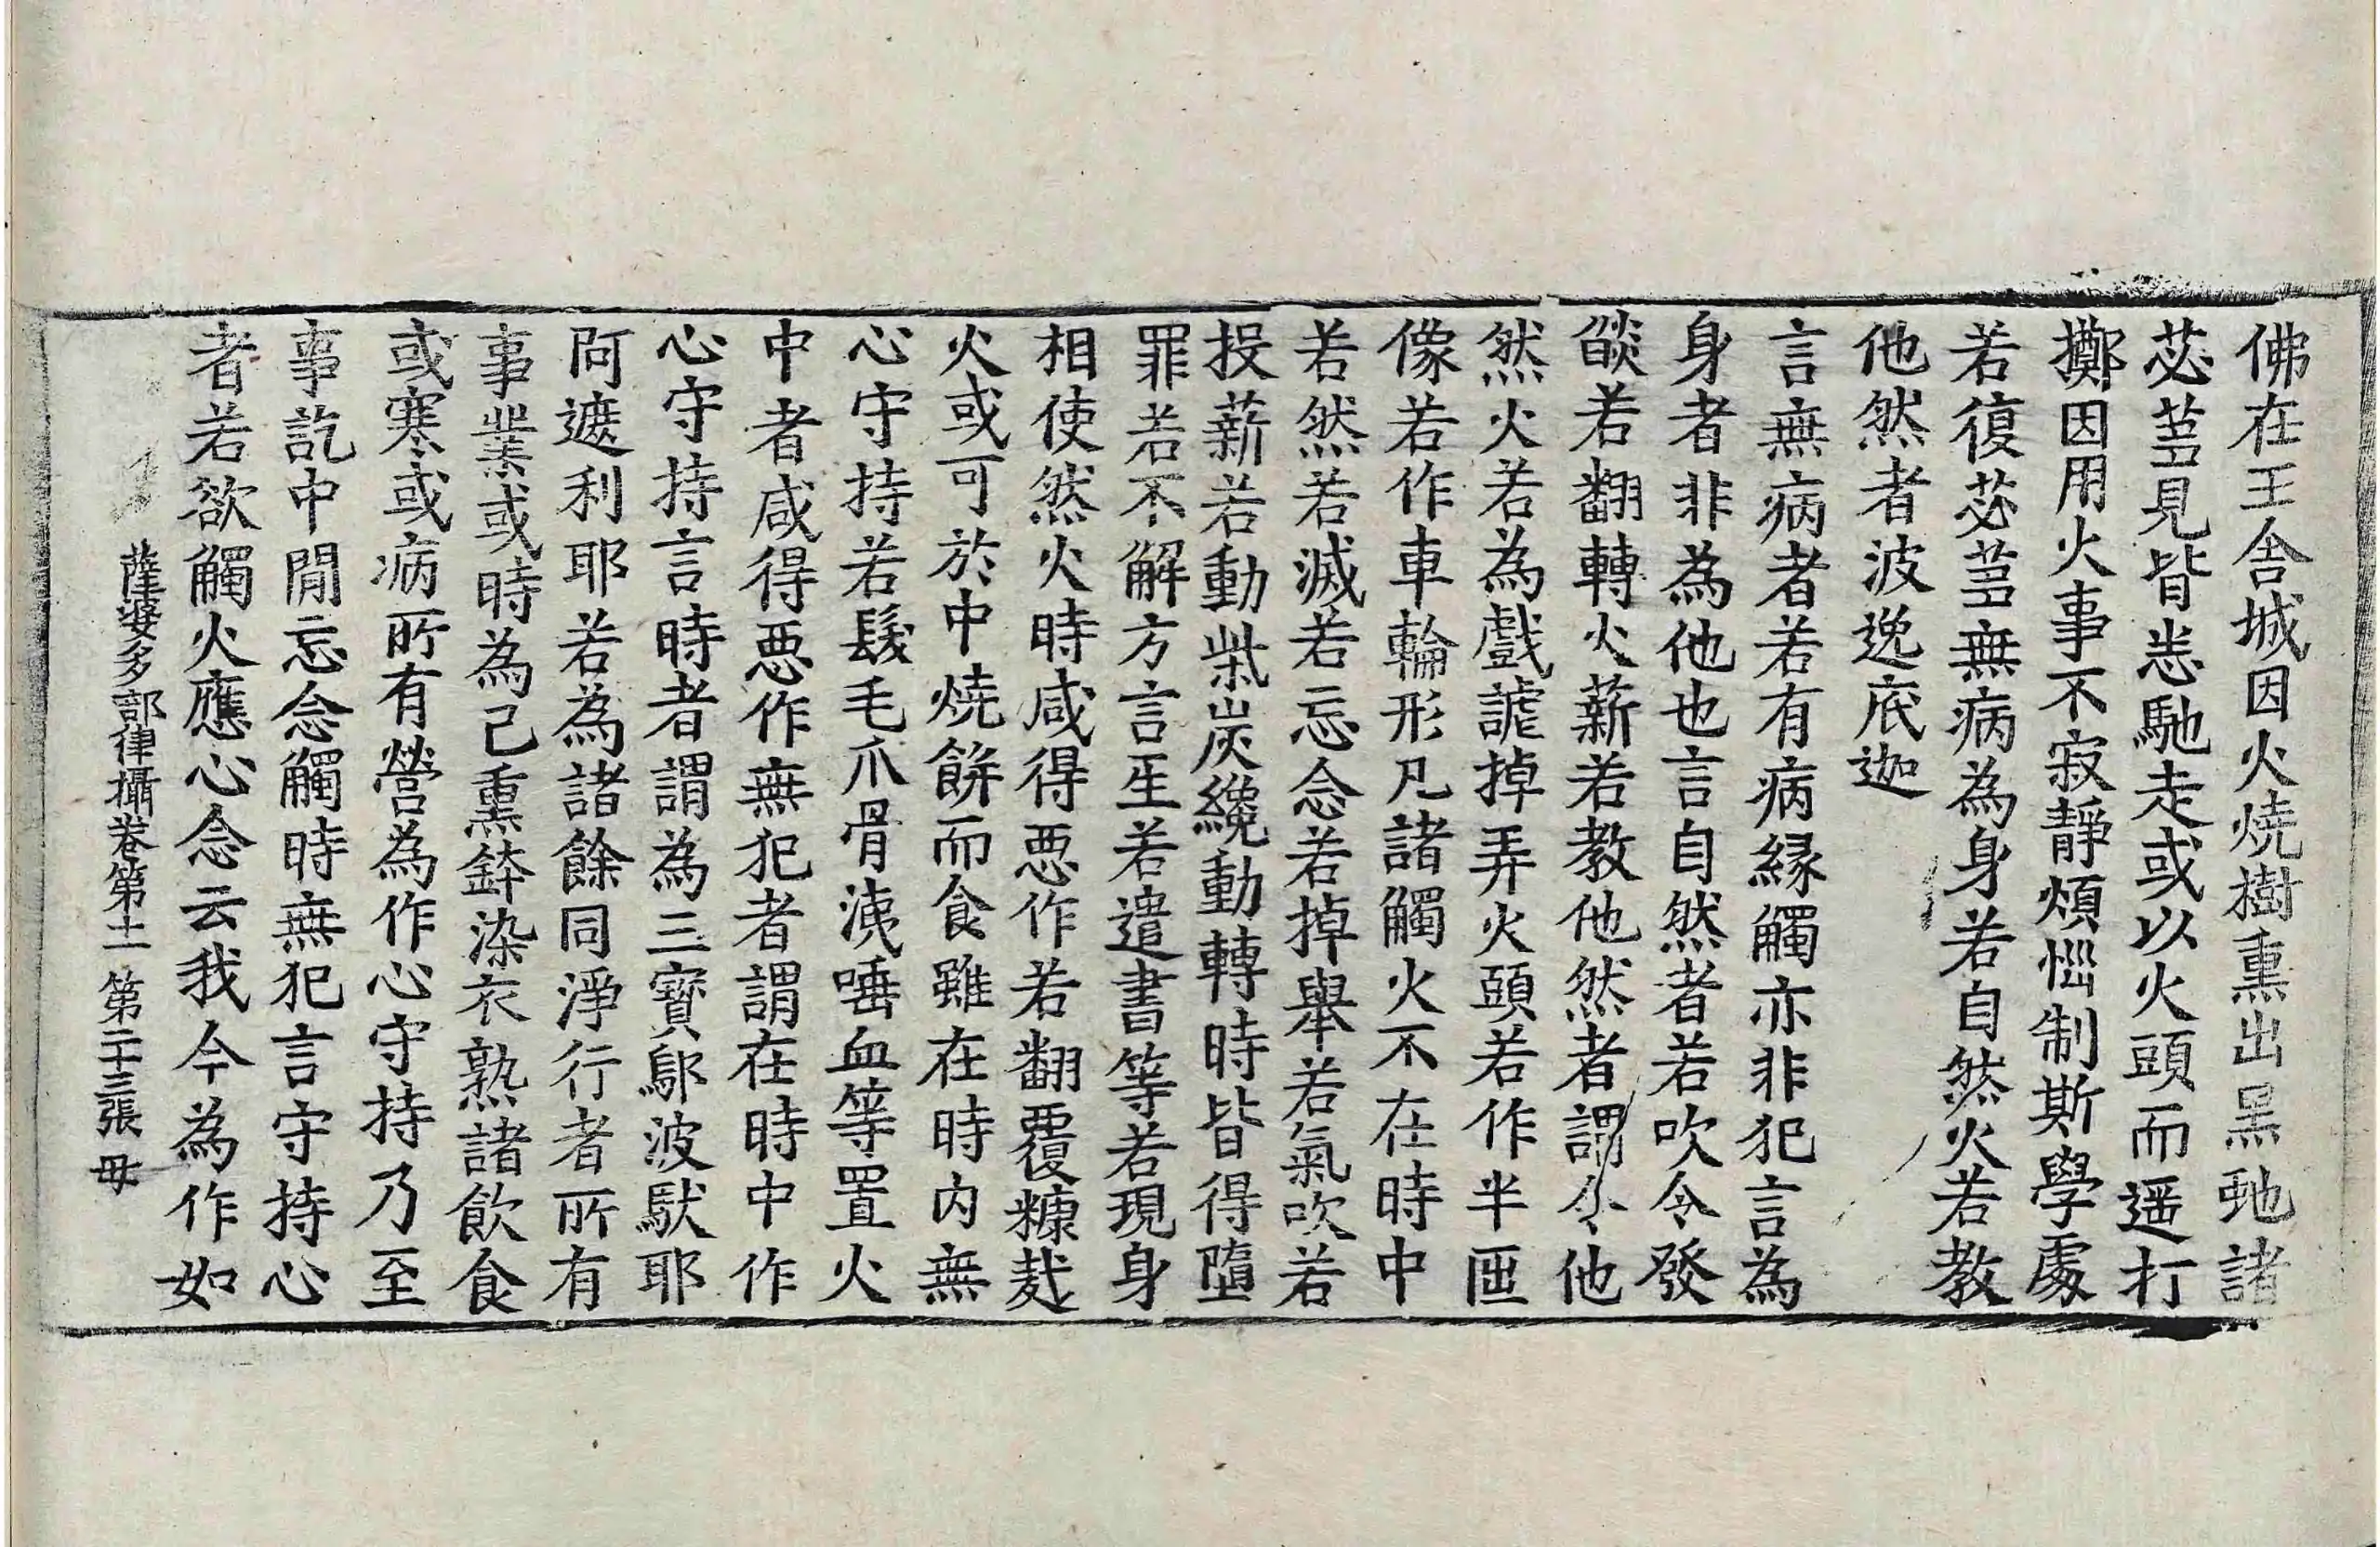 佛在王舍城因火燒樹熏出黑虵諸
苾蒭見皆恙馳走或以火頭而遥打
擲因用火事不寂靜煩惱制斯學處
若復苾蒭無病為身若自然火若教
他然者波逸底迦
言無病者若有病緣觸亦非犯言為
身者非為他也言自然者若吹令發
燄若翻轉火薪若教他然者謂令他
然火若為戲謔掉弄火頭若作半匝
像若作車輪形凡諸觸火不在時中
若然若滅若忘念若掉舉若氣吹若
投薪若動柴炭纔動轉時皆得墮
罪若不解方言生若遣書等若現身
相使然火時咸得悪作若翻覆糠𥝖
火或可於中燒餅而食雖在時內無
心守持若髮毛爪骨洟唾血等置火
中者咸得悪作無犯者謂在時中作
心守持言時者謂為三寶鄔波馱耶
阿遮利耶若為諸餘同淨行者所有
事業或時為己熏鉢染衣熟諸飲食
或寒或病所有營為作心守持乃至
事訖中間忘念觸時無犯言守持心
者若欲觸火應心念云我今為作如
薩婆多部律攝卷第十一 第二十三張 毋